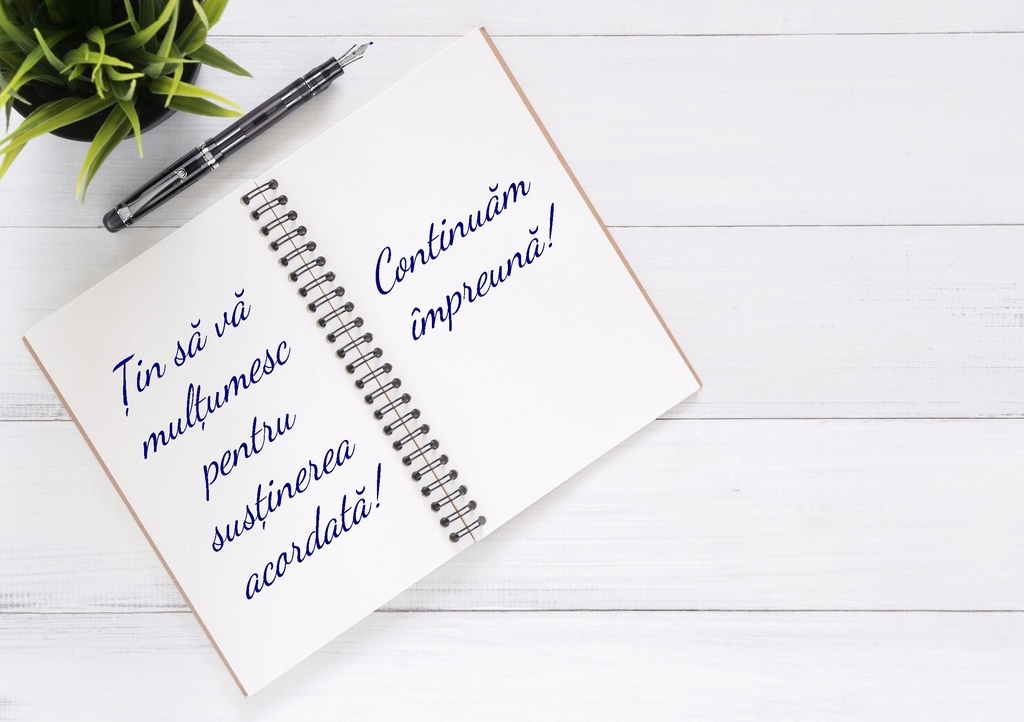 Țin să vă
mulțumesc
pentru
susținerea
acordată!
Continuăm
împreună!